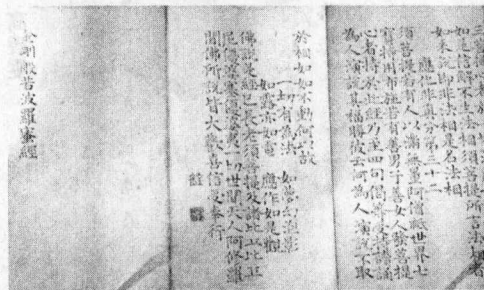 三菩
如是信解不生法相須菩提所言法相者
如來說即非法相是名法相
應化非真分第三十二
須菩提若有人以滿無量阿僧祇世界七
寶持用布施若有善男子善女人發菩提
心者持於此經乃至四句偈等受持讀誦
為人演說其福勝彼云何為人演說不取
於相如如不動何以故
一切有為法 如夢幻泡影
如露亦如電 應作如是觀
佛說是經已長老須菩提及諸比丘比丘
尼優婆塞優婆夷一切世間天人阿修羅
聞佛所說皆大歡喜信受奉行
金剛般若波羅蜜經